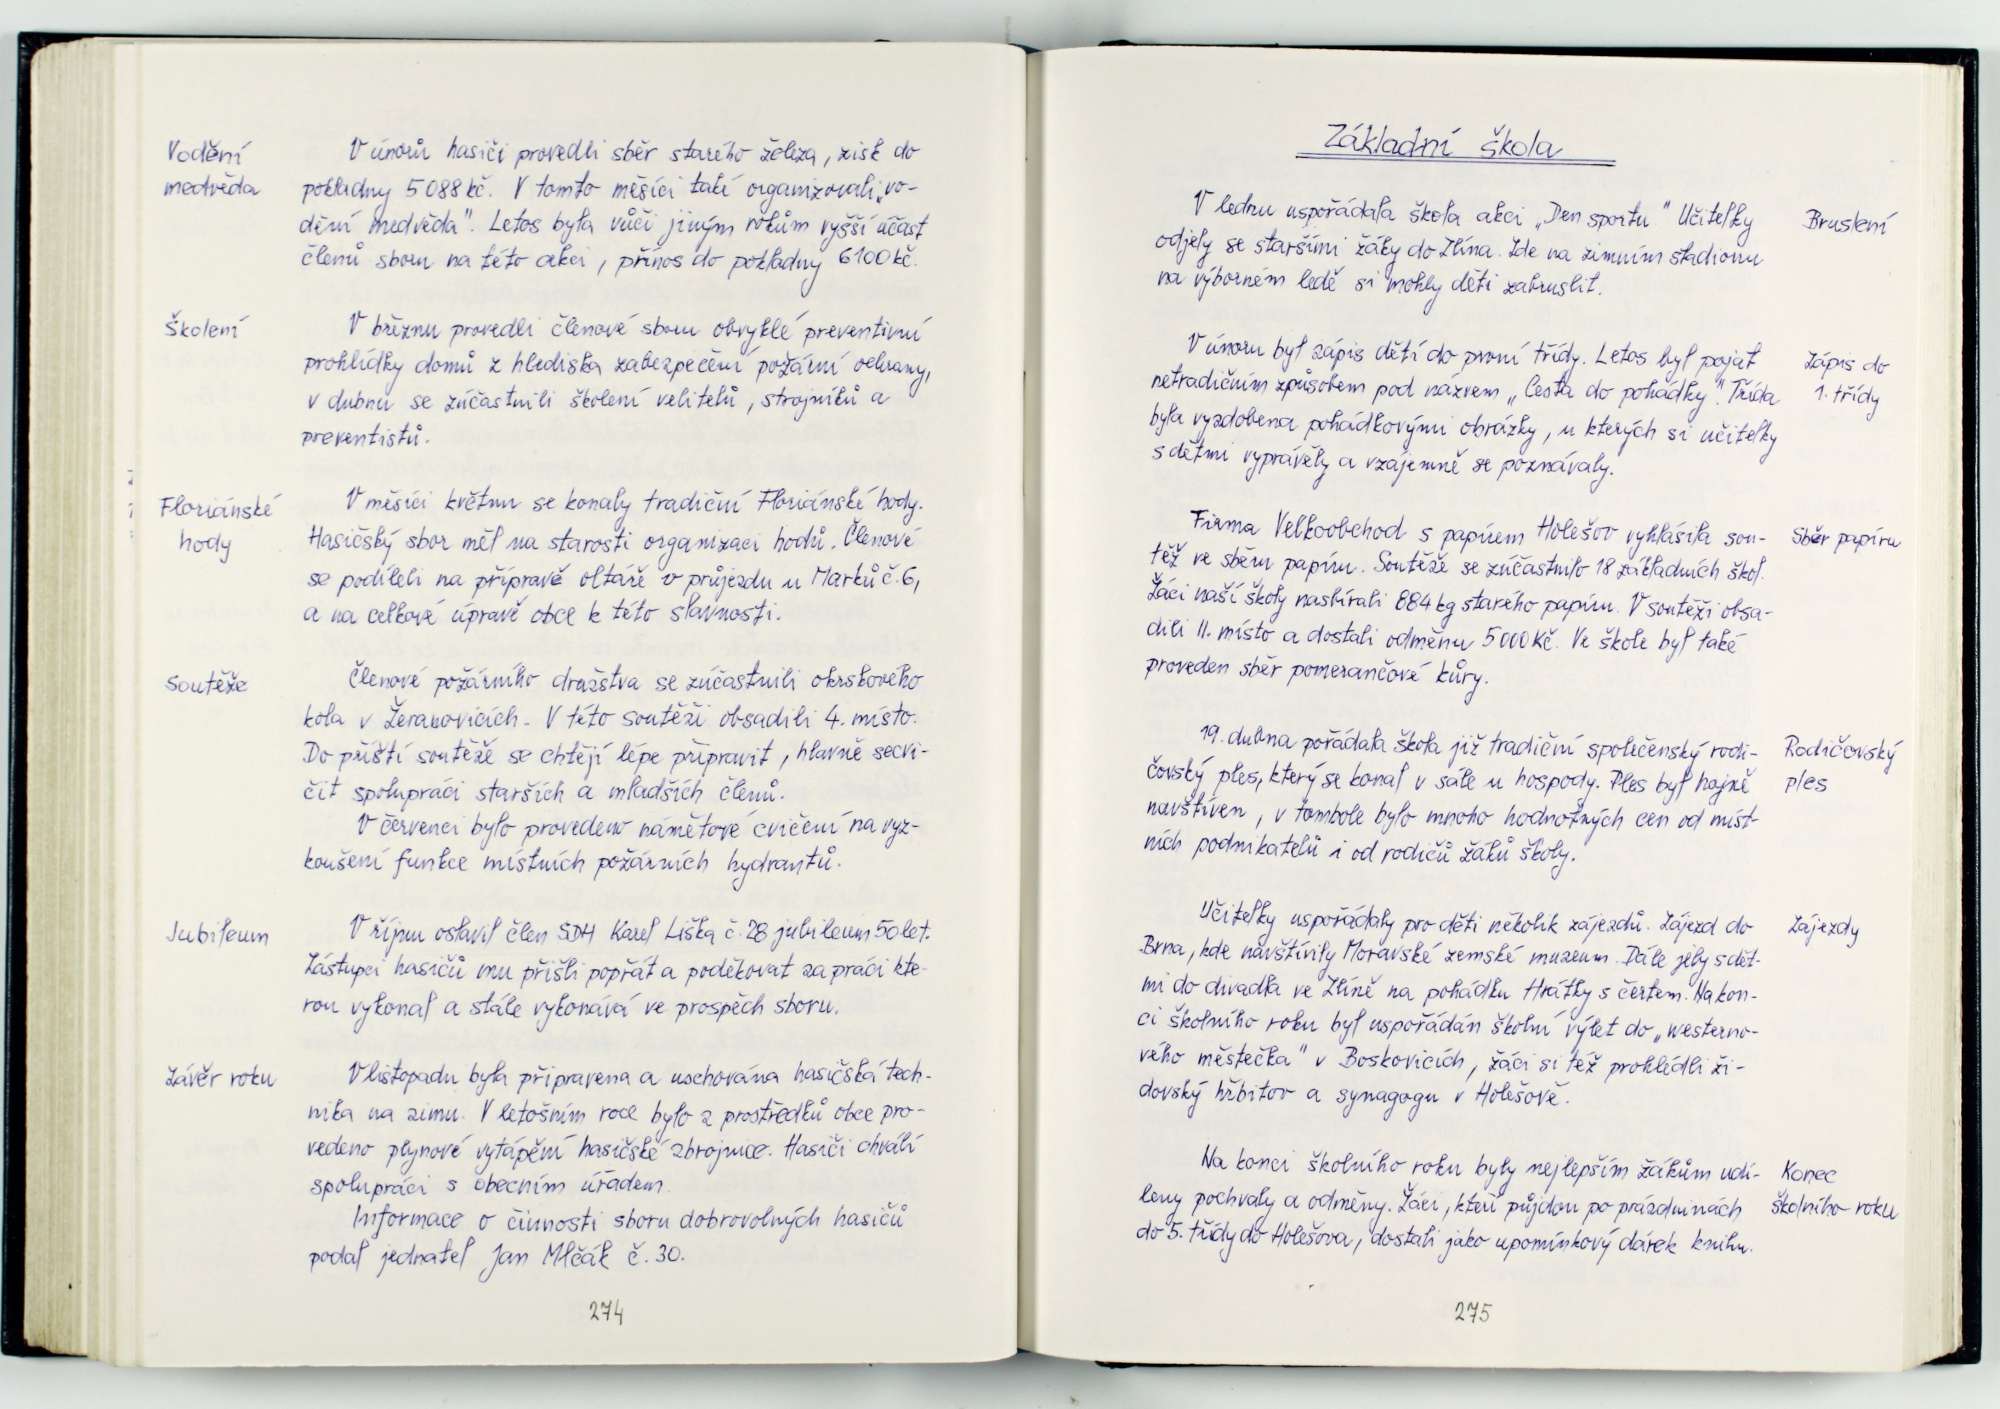 Vodění
medvěda
V únorů hasiči provedli sběr starého železa, zisk do
pokladny 5 088 kč. V tomto měsíci také organizovali „vo-
dění medvěda". Letos byla vůči jiným rokům vyšší účast
členů sboru na této akci, přínos do pokladny 6100 kč.
Školení
V březnu provedli členové sboru obvyklé preventivní
prohlídky domů z hlediska zabezpečení požární ochrany,
v dubnu se zúčastnili školení velitelů, strojníků a
preventistů.
Floriánské
hody
V měsíci květnu se konaly tradiční Floriánské hody.
Hasičský sbor měl na starosti organizaci hodů. Členové
se podíleli na přípravě oltáře v průjezdu u Marků č. 6,
a na celkové úpravě obce k této slavnosti.
Soutěže
Členové požárního družstva se zúčastnili okrskového
kola v Žeranovicích. V této soutěži obsadili 4. místo.
Do příští soutěže se chtějí lépe připravit, hlavně secvi-
čit spolupráci starších a mladších členů.
V červenci bylo provedeno námětové cvičení na vyz-
koušení funkce místních požárních hydrantů.
Jubileum
V říjnu oslavil člen SDH Karel Liška č. 28 jubileum 50 let.
Zástupci hasičů mu přišli popřát a poděkovat za práci kte-
rou vykonal a stále vykonává ve prospěch sboru.
Závěr roku
V listopadu byla připravena a uschována hasičská tech-
nika na zimu. V letošním roce bylo z prostředků obce pro-
vedeno plynové vytápění hasičské zbrojnice. Hasiči chválí
spolupráci s obecním úřadem.
Informace o činnosti sboru dobrovolných hasičů
podal jednatel Jan Mlčák č. 30.
274
Základní škola
V lednu uspořádala škola akci „Den sportu" Učitelky
odjely se staršími žáky do Zlína. Zde na zimním stadionu
na výborném ledě si mohly děti zabruslit.
Bruslení
V únoru byl zápis dětí do první třídy. Letos byl pojat
netradičním způsobem pod názvem „Cesta do pohádky". Třída
byla vyzdobena pohádkovými obrázky, u kterých si učitelky
s dětmi vyprávěly a vzájemně se poznávaly.
Zápis do
1. třídy
Firma Velkoobchod s papírem Holešov vyhlásila sou-
těž ve sběru papíru. Soutěže se zúčastnilo 18 základních škol.
Žáci naší školy nasbírali 884 kg starého papíru. V soutěži obsa-
dili 11. místo a dostali odměnu 5 000 Kč. Ve škole byl také
proveden sběr pomerančové kůry.
Sběr papíru
19. dubna pořádala škola již tradiční společenský rodi-
čovský ples, který se konal v sále u hospody. Ples byl hojně
navštíven, v tombole bylo mnoho hodnotných cen od míst-
ních podnikatelů i od rodičů žáků školy.
Rodičovský
ples
Učitelky uspořádaly pro děti několik zájezdů. Zájezd do
Brna, kde navštívily Moravské zemské muzeum. Dále jely s dět-
mi do divadla ve Zlíně na pohádku Hrátky s čertem. Na kon-
ci školního roku byl uspořádán školní výlet do „westerno-
vého městečka" v Boskovicích, žáci si též prohlédli ži-
dovský hřbitov a synagogu v Holešově.
Zájezdy
Na konci školního roku byly nejlepším žákům udí-
leny pochvaly a odměny. Žáci, kteří půjdou po prázdninách
do 5. třídy do Holešova, dostali jako upomínkový dárek knihu.
Konec
školního roku
275